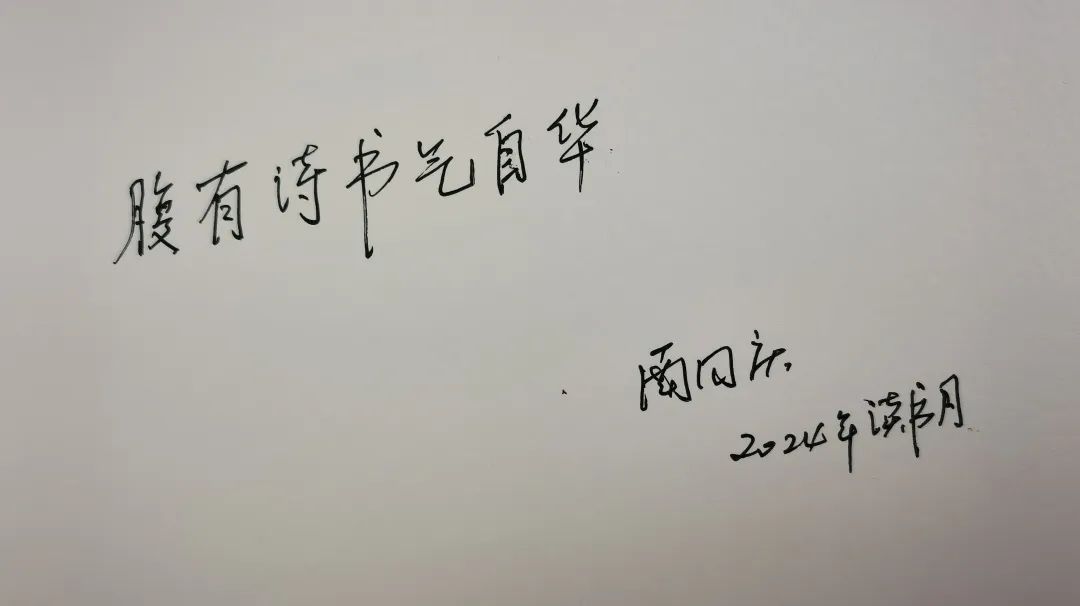 腹有诗书气自华
同庆
2024年读书月